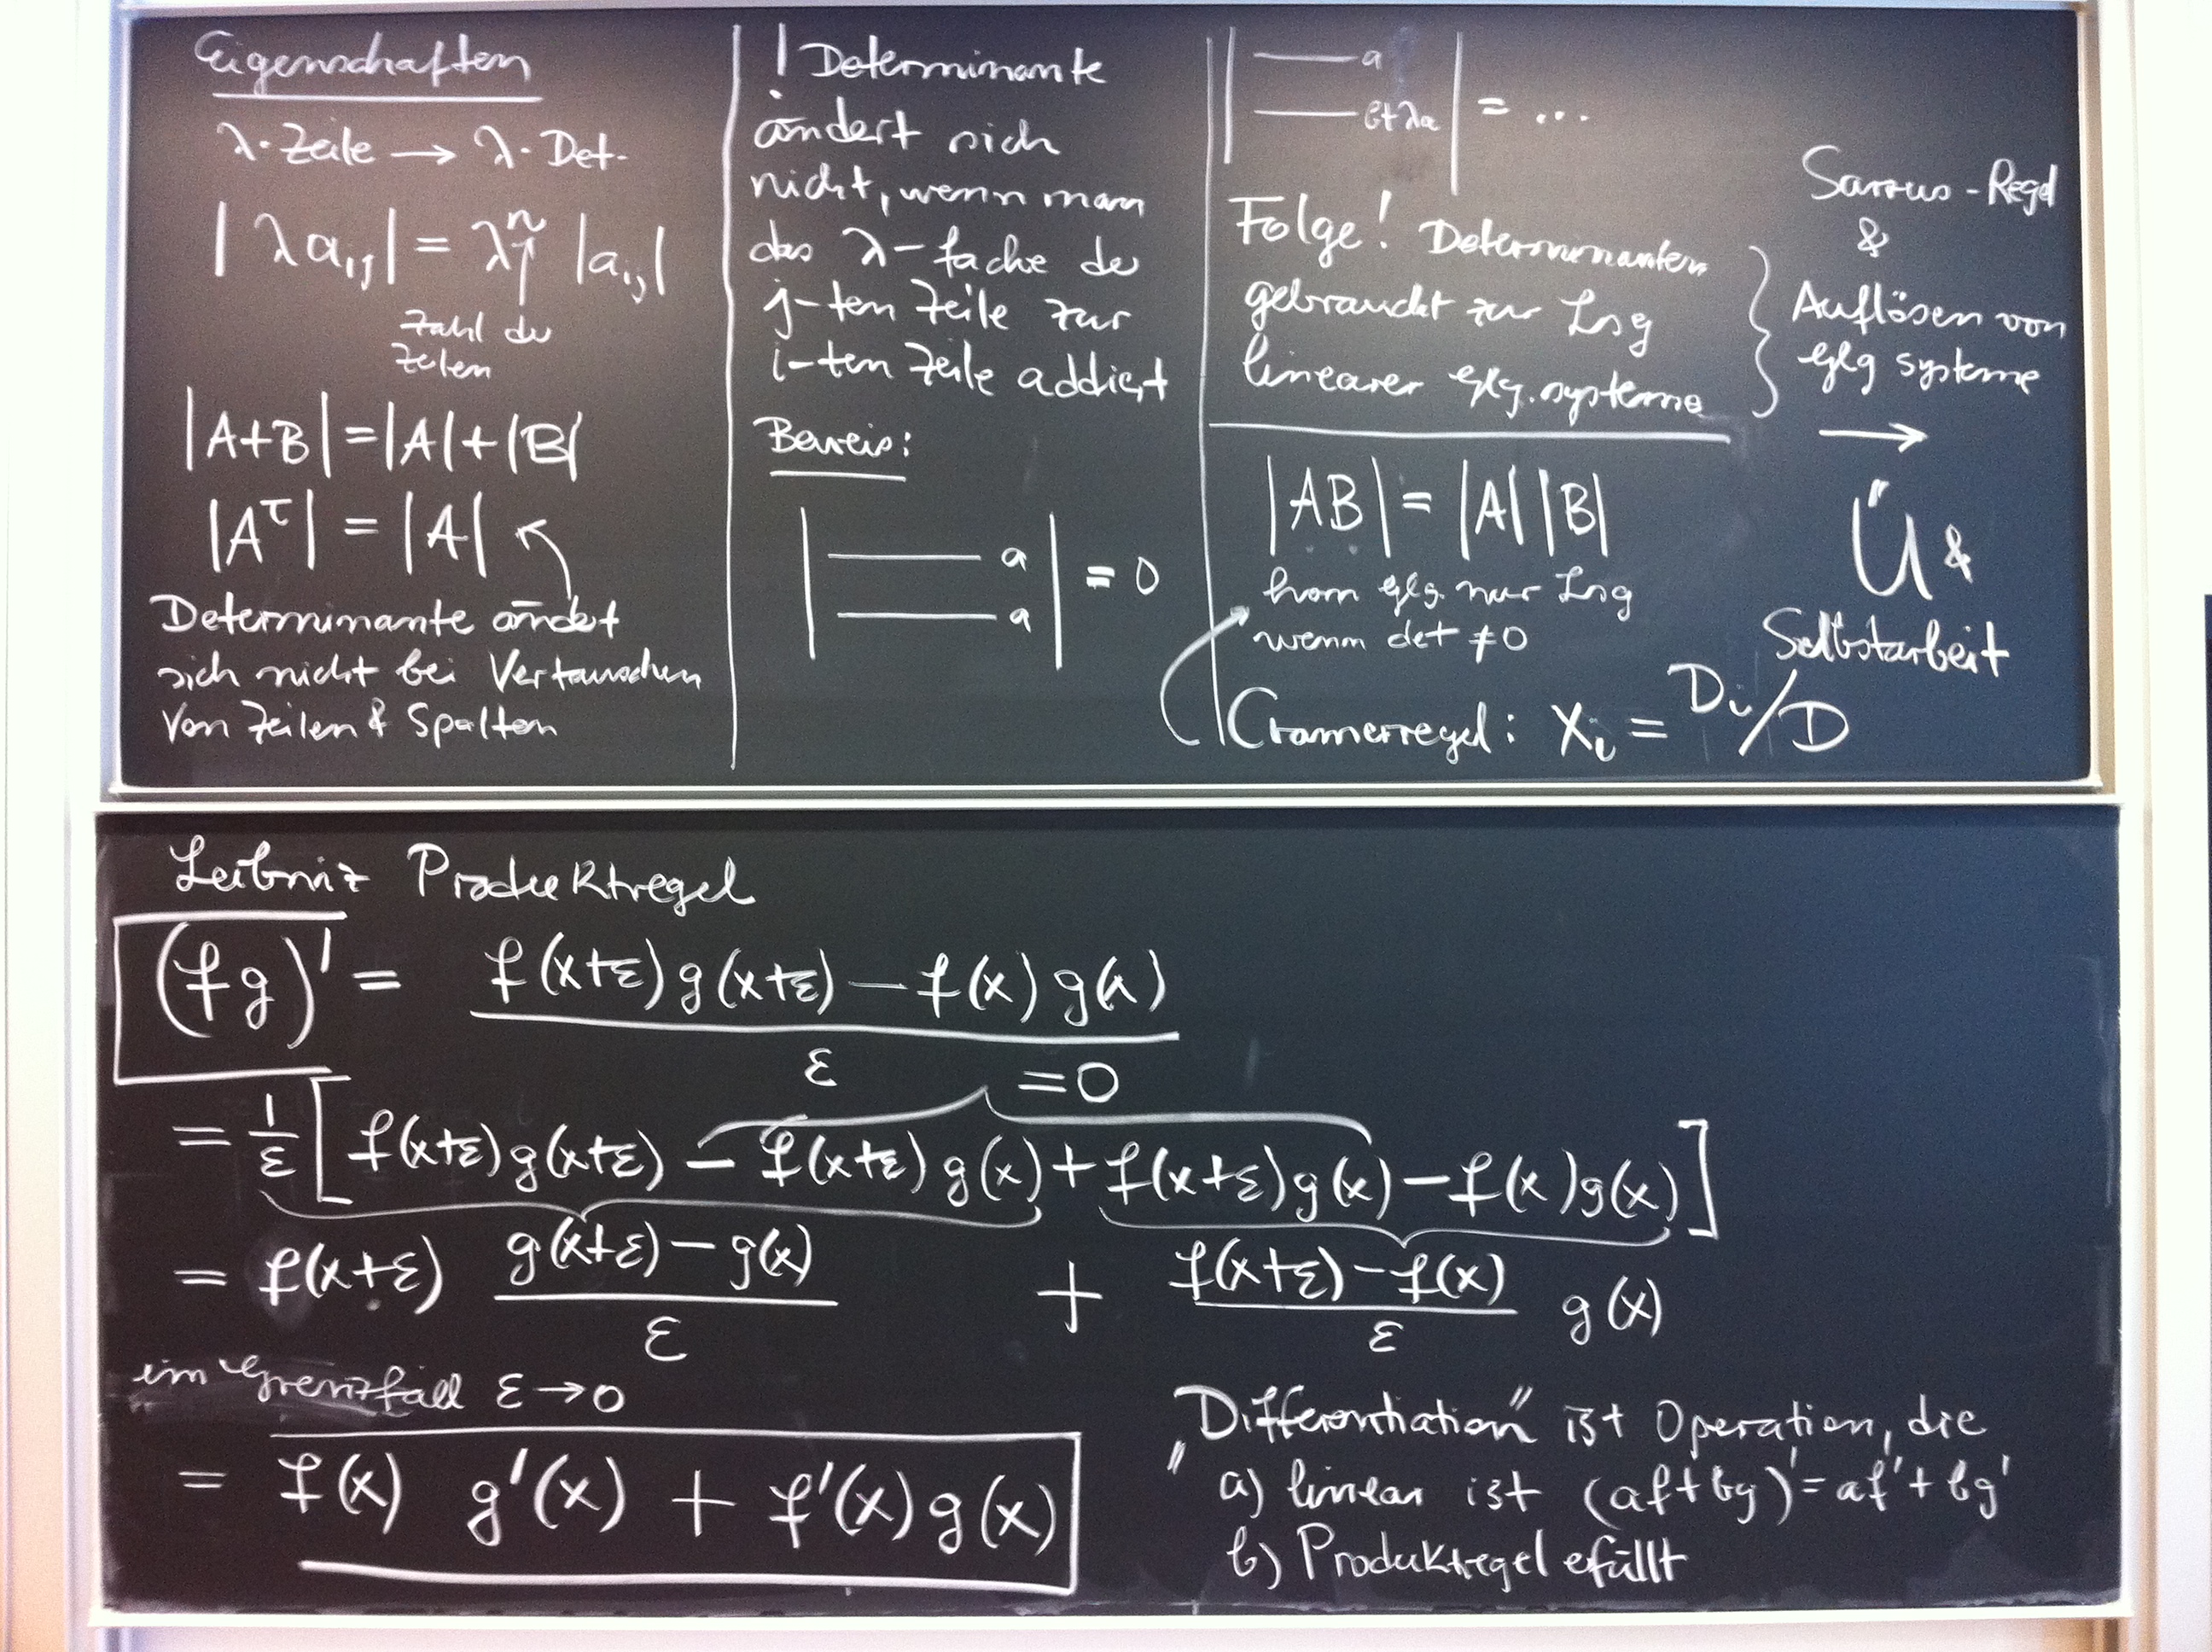 Eigenschaften
λ·Zeile → λ·Det.
|λa_{i,j}| = λ^n |a_{i,j}|
↑
Zahl der
Zeilen
|A+B| = |A| + |B|
|A^T| = |A|
Determinante ändert
sich nicht bei Vertauschen
von Zeilen & Spalten
! Determinante
ändert sich
nicht, wenn man
das λ-fache der
j-ten Zeile zur
i-ten Zeile addiert
Beweis:
| —— a
—— a | = 0
| —— a
—— b+λa | = ...
Folge! Determinanten
gebraucht zur Lsg
linearer Glg.systeme
Sarrus-Regel
&
Auflösen von
Glg systeme
→
Ü &
Selbstarbeit
|AB| = |A||B|
hom glg. nur Lsg
wenn det ≠ 0
Cramerregel: x_i = D_i/D
Leibniz Produktregel
(fg)' = (f(x+ε)g(x+ε) − f(x)g(x)) / ε
= 0
= 1/ε [f(x+ε)g(x+ε) − f(x+ε)g(x) + f(x+ε)g(x) − f(x)g(x)]
= f(x+ε) (g(x+ε) − g(x)) / ε + (f(x+ε) − f(x)) / ε g(x)
im Grenzfall ε → 0
= f(x) g'(x) + f'(x) g(x)
„Differentiation" ist Operation, die
a) linear ist (af+bg)' = af' + bg'
b) Produktregel efüllt